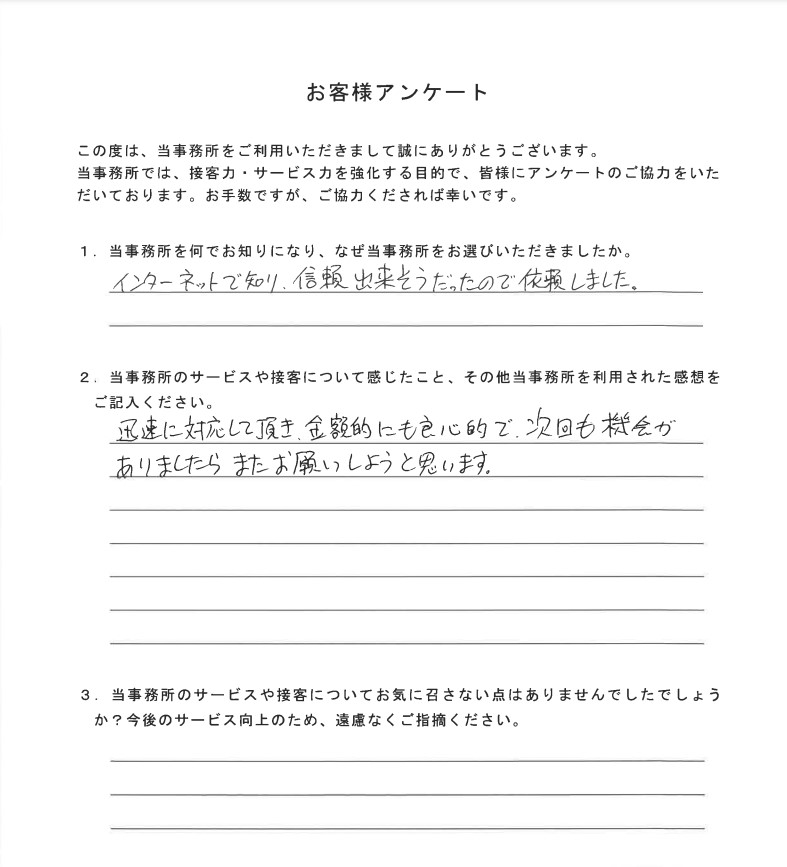 お客様アンケート
この度は、当事務所をご利用いただきまして誠にありがとうございます。
当事務所では、接客力・サービス力を強化する目的で、皆様にアンケートのご協力をいた
だいております。お手数ですが、ご協力くだされば幸いです。
１．当事務所を何でお知りになり、なぜ当事務所をお選びいただきましたか。
インターネットで知り、信頼出来そうだったので依頼しました。
２．当事務所のサービスや接客について感じたこと、その他当事務所を利用された感想を
ご記入ください。
迅速に対応して頂き、金額的にも良心的で、次回も機会が
ありましたらまたお願いしようと思います。
３．当事務所のサービスや接客についてお気に召さない点はありませんでしたでしょう
か？今後のサービス向上のため、遠慮なくご指摘ください。